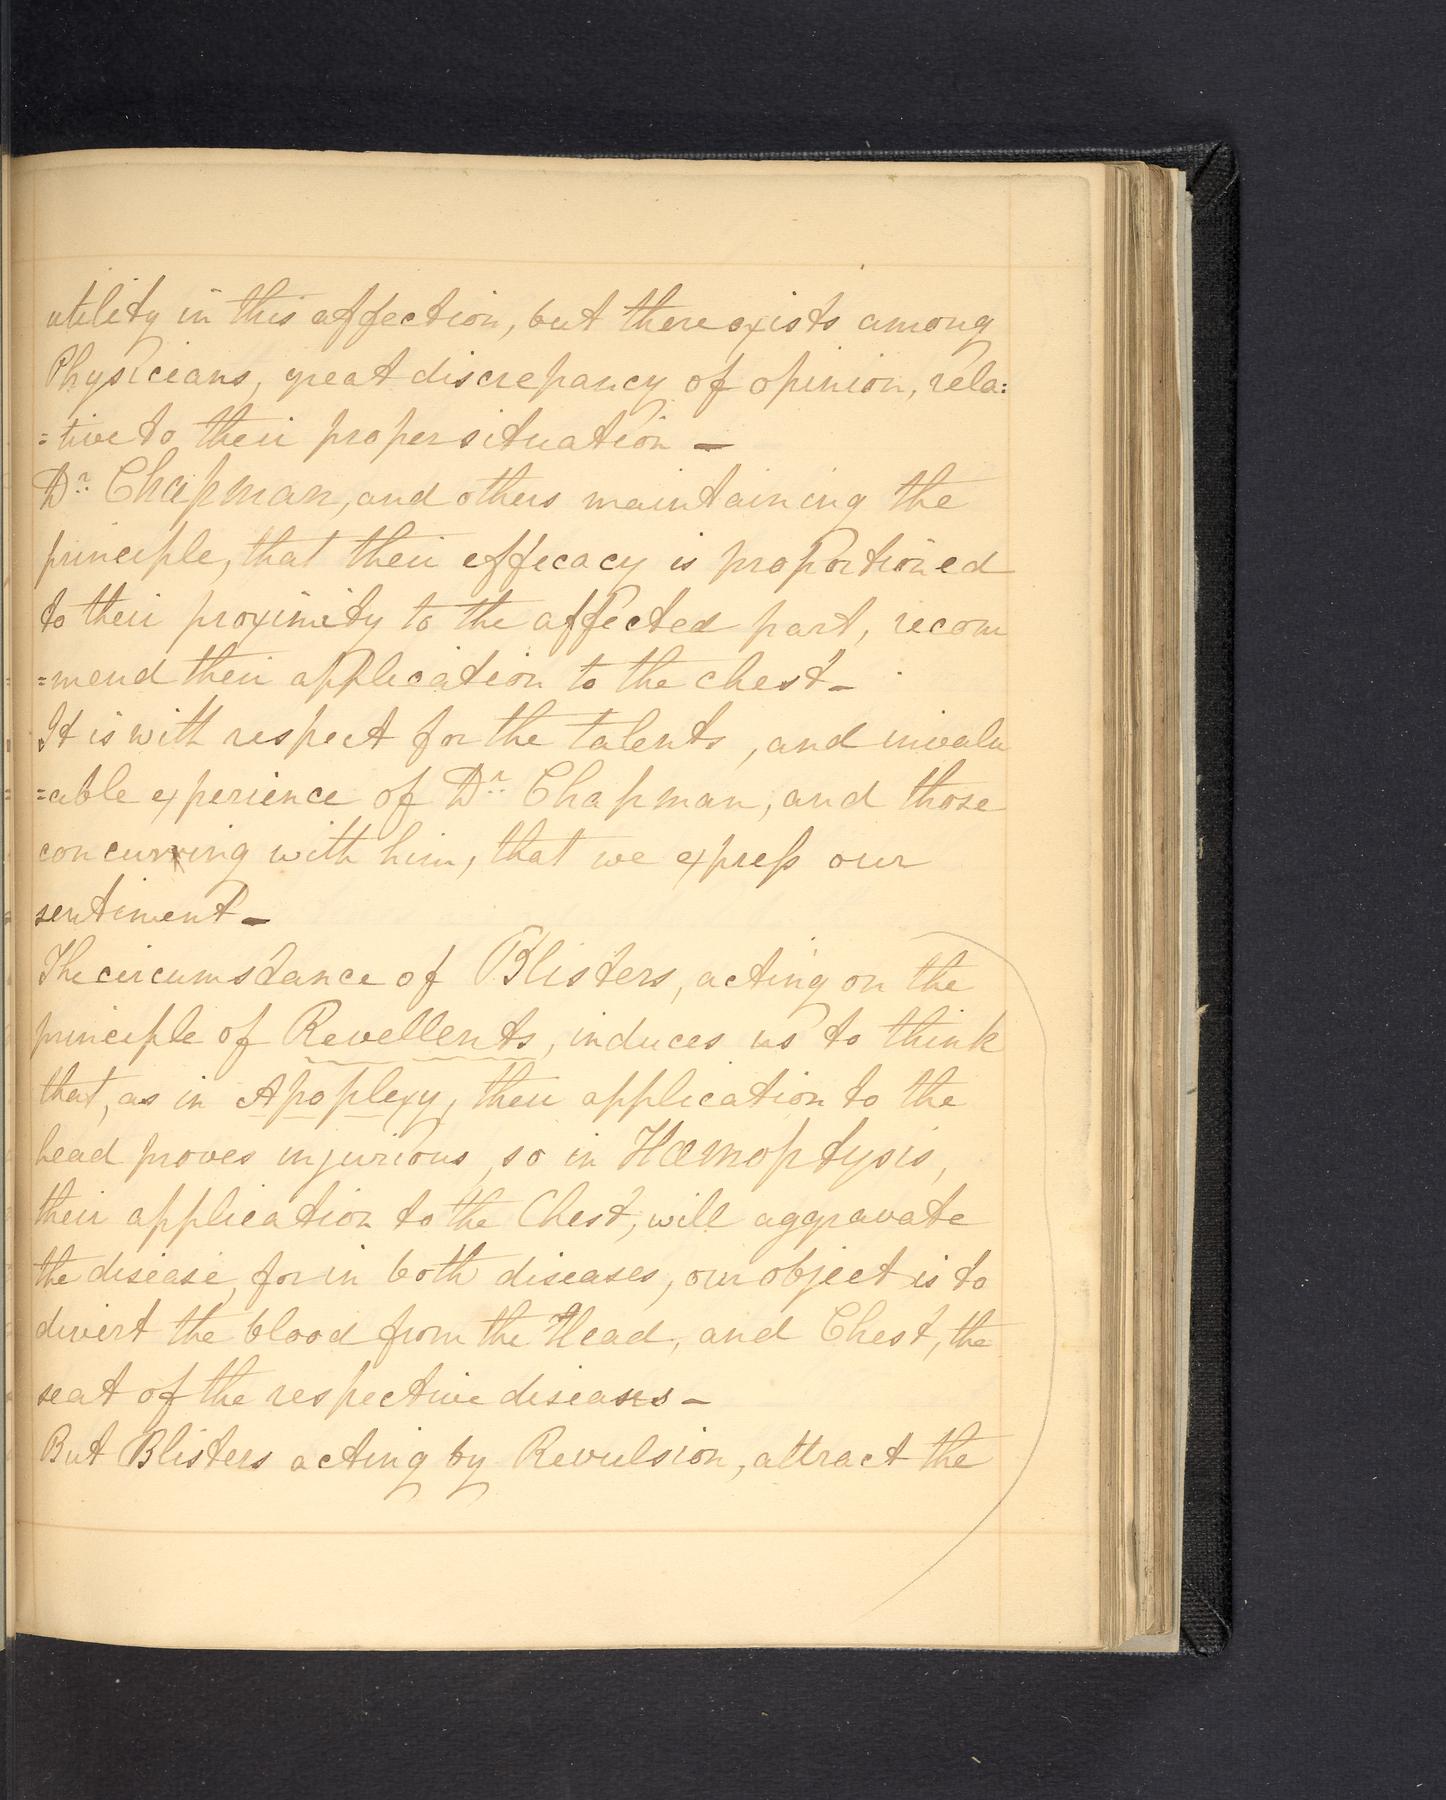 utility in this affection, but there exists among
Physicians, great discrepancy of opinion, rela:
=tive to their proper situation —
Dr. Chapman, and others maintaining the
principle, that their effecacy is proportioned
to their proximity to the affected part, recom
=mend their application to the chest —
It is with respect for the talents, and invalu
=able experience of Dr. Chapman, and those
concurring with him, that we expreſs our
sentiment —
The circumstance of Blisters, acting on the
principle of Revellents, induces us to think
that, as in Apoplexy, their application to the
head proves injurious, so in Hæmoptysis,
their application to the Chest, will aggravate
the disease, for in both diseases, our object is to
divert the blood from the Head, and Chest, the
seat of the respective diseases —
But Blisters acting by Revulsion, attract the